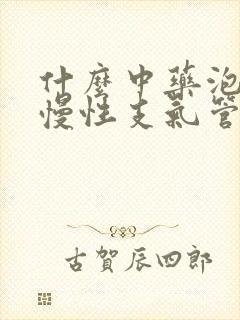 什麼中藥泡
慢性支氣管
古賀辰四郎